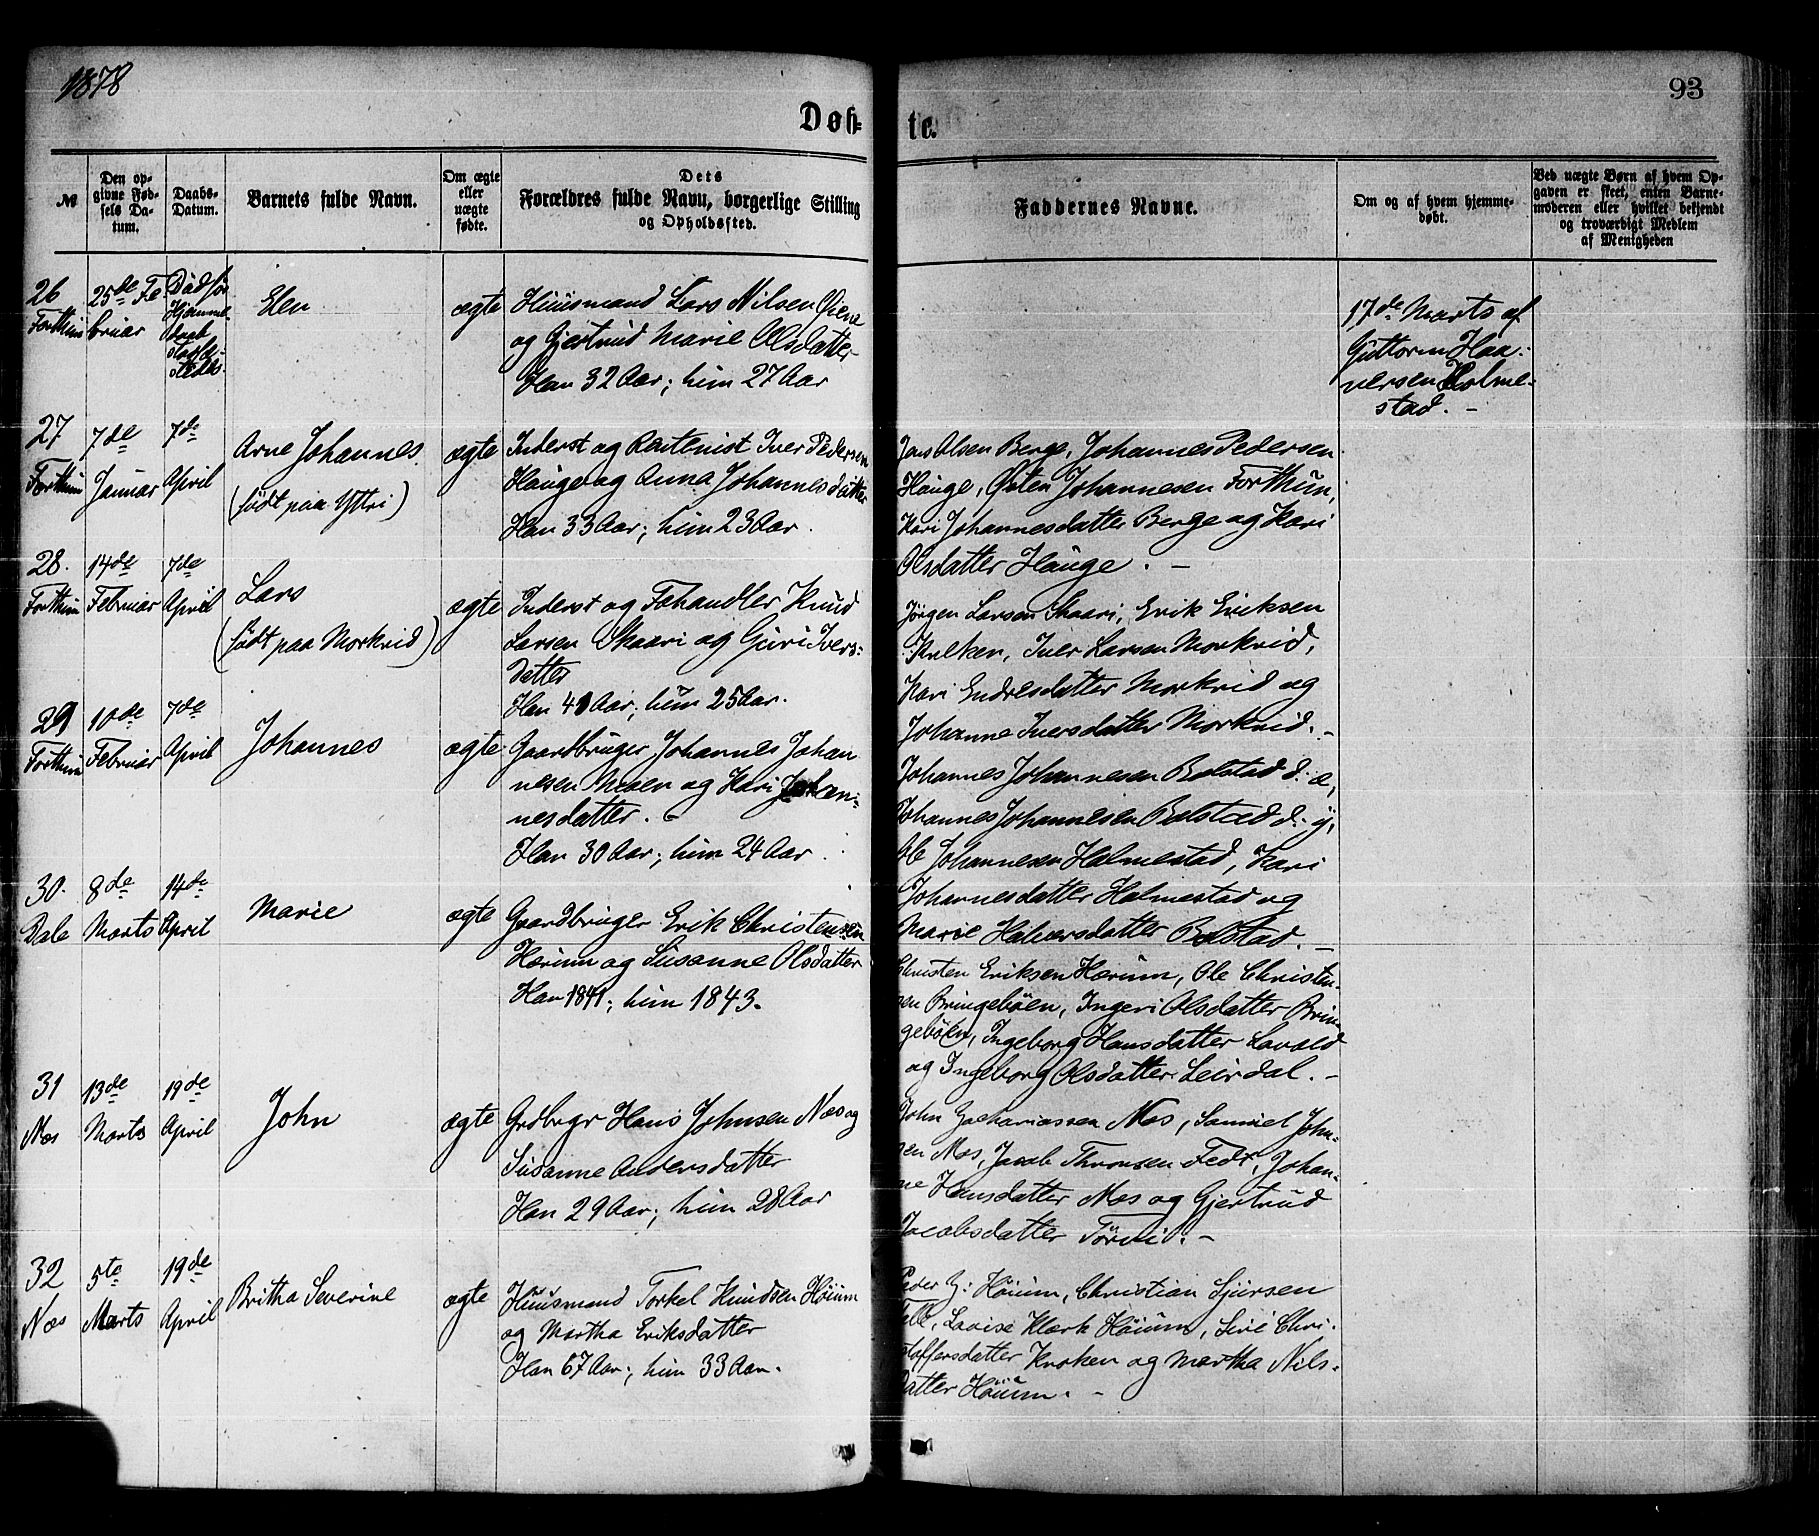 1878
93
Døb-
te.
№
Den op-
givne Fød-
sels Da-
tum.
Daabs-
Datum.
Barnets fulde Navn.
Om ægte
eller
uægte
fødte.
Dets
Forældres fulde Navn, borgerlige Stilling
og Opholdssted.
Faddernes Navne.
Om og af hvem hjemme-
døbt.
Ved uægte Børn af hvem Op-
gaven er skeet, enten Barne-
moderen eller hvilket bekjendt
og troværdigt Medlem
af Menigheden
26
Forthun
25de Fe
bruar
Død før
Hjemme-
daab
stadfæ-
stedes.
Elen
ægte
Huusmand Lars Nilsen Øiene
og Gjertrud Marie Olsdatter
Han 32 Aar; hun 27 Aar
17de Marts af
Guttorm Haa-
versen Holme-
stad. -
27
Forthun
7de
Januar
7de
April
Arne Johannes
(født paa Yttri)
ægte
Inderst og Rentenist Iver Pedersen
Hauge og Anna Johannesdatter
Han 33 Aar; hun 23 Aar.
Jens Olsen Berge, Johannes Pedersen
Hauge, Østen Johannesen Forthun,
Kari Johannesdatter Berge og Kari
Olsdatter Hauge. -
28.
Forthun
14de
Februar
7de
April
Lars
(født paa Morkrid)
ægte
Inderst og Fæhandler Knud
Larsen Skaari og Guri Ivers-
datter
Han 40 Aar; hun 25 Aar.
Jørgen Larsen Skaari, Erik Eriksen
Kulken, Iver Larsen Morkrid,
Kari Endresdatter Morkrid og
Johanne Iversdatter Morkrid. -
29
Forthun
10de
Februar
7de
April
Johannes
ægte
Gaardbruger Johannes Johan
nesen Moen og Kari Johan-
nesdatter. -
Han 30 Aar; hun 24 Aar.
Johannes Johannesen Bolstad d: æ,
Johannes Johannesen Bolstad d: y,
Ole Johannesen Holmestad, Kari
Johannesdatter Holmestad og
Marie Halvorsdatter Bolstad. -
30.
Dale
8de
Marts
14de
April
Marie
ægte
Gaardbruger Erik Christensen
Hærum og Susanne Olsdatter
Han 1841; hun 1843.
Christen Eriksen Hærum, Ole Christen-
sen Bringebøen, Ingeri Olsdatter Brin-
gebøen, Ingeborg Hansdatter Lavold
og Ingeborg Olsdatter Leirdal. -
31
Næs
13de
Marts
19de
April
John
ægte
Grdbrgr Hans Johnsen Næs og
Susanne Andersdatter
Han 29 Aar; hun 28 Aar
John Zachariassen Næs, Samuel John-
sen Næs, Jacob Thronsen Feds, Johan-
ne Hansdatter Næs og Gjertrud
Jacobsdatter Tørvi. -
32
Næs
5te
Marts
19de
April
Britha Severine
ægte
Huusmand Torkel Knudsen Høium
og Martha Eriksdatter
Han 67 Aar; hun 33 Aar.
Peder Z: Høium, Christian Sjursen
Lovise Klerk Høium, Siri Chri-
stoffersdatter Kroken og Martha Nils-
datter Høium. -